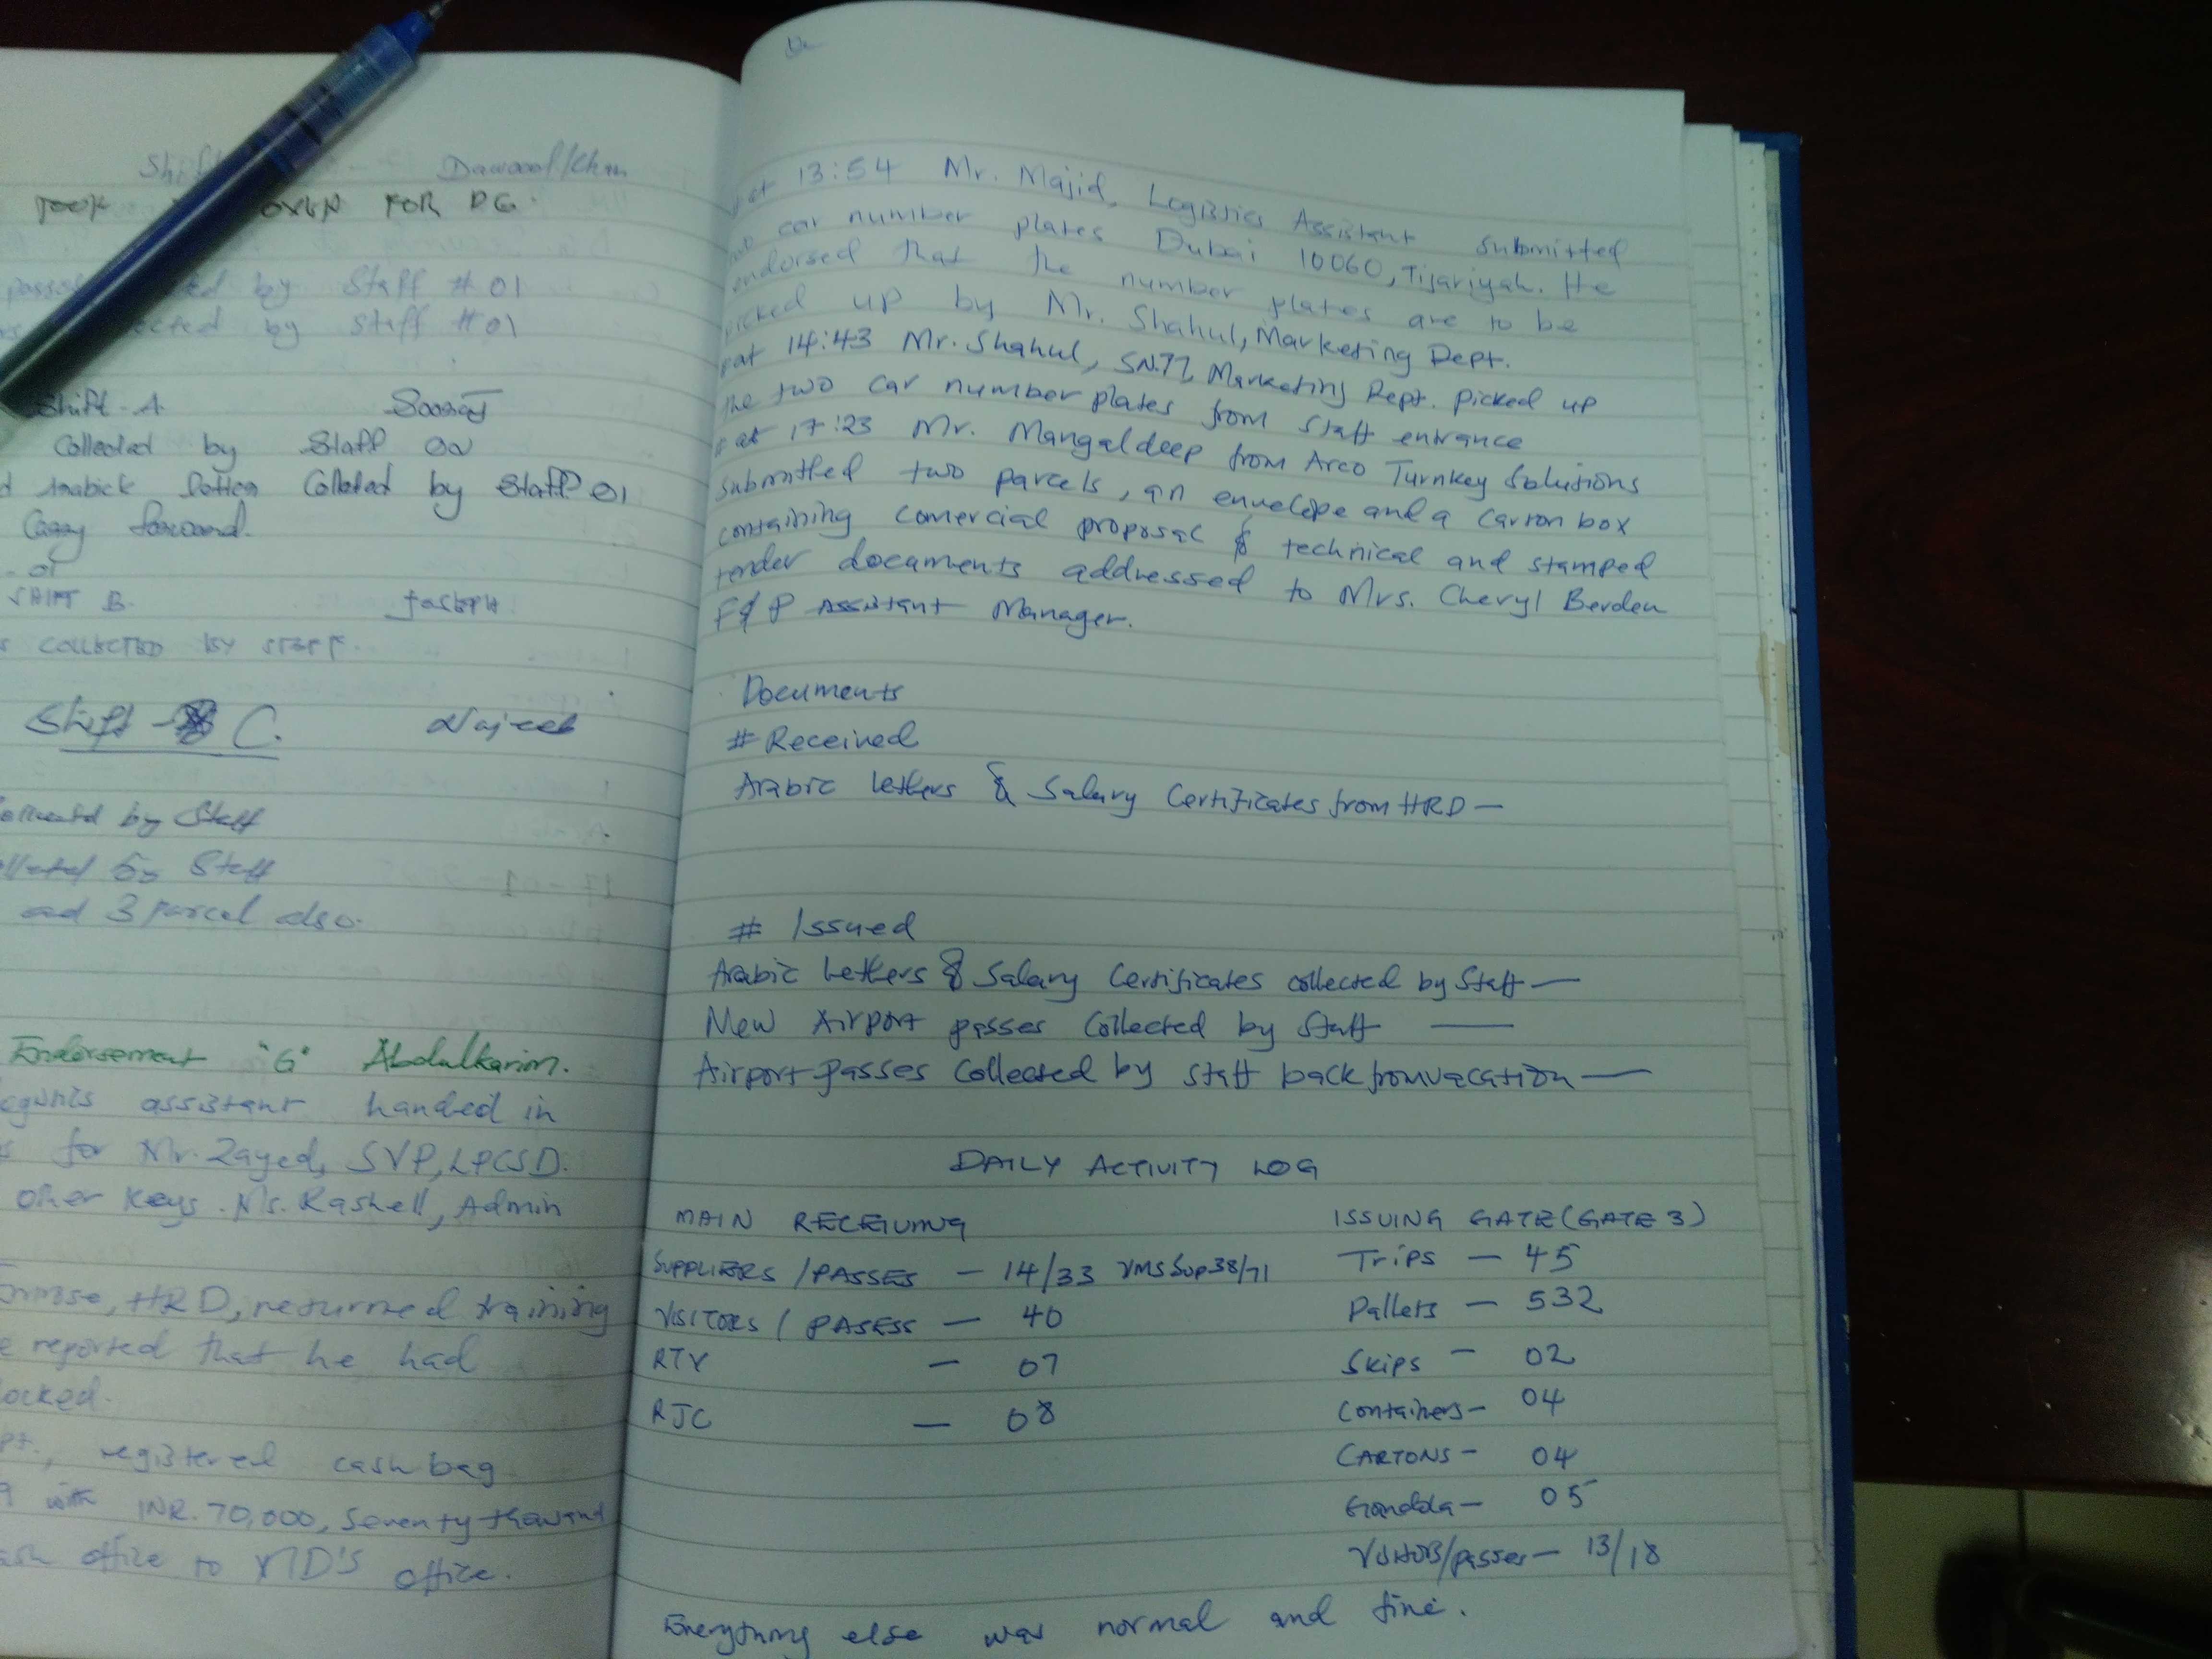 Dawood/Khan
FOR DG.
by Staff #01
by Staff #01
Shift-A.
Collected by Staff
Collated by Staff 01
Carry forward.
01
SHIFT B. JOSEPH
COLLECTED BY STAFF.
Shift - C. Najeeb
by Staff
Staff
and 3 parcel also.
Endorsement "G" Abdulkarim.
assistant handed in
for Mr. Zayed, SVP, LPCSD.
other keys. Ms. Rashell, Admin
HRD, returned training
reported that he had
registered cash bag
with INR. 70,000, Seventy thousand
office to MD'S office.
at 13:54 Mr. Majid, Logistics Assistant submitted
car number plates Dubai 10060, Tijariyah. He
endorsed that the number plates are to be
picked up by Mr. Shahul, Marketing Dept.
at 14:43 Mr. Shahul, Marketing Dept. picked up
the two car number plates from Staff entrance
at 17:23 Mr. Mangaldeep from Arco Turnkey Solutions
submitted two parcels, an envelope and a carton box
containing comercial proposal & technical and stamped
tender documents addressed to Mrs. Cheryl Berden
F&P Assistant Manager.
Documents
# Received
Arabic letters & Salary Certificates from HRD —
# Issued
Arabic Letters & Salary Certificates collected by Staff —
New Airport passes Collected by Staff —
Airport passes Collected by staff back from vacation —
DAILY ACTIVITY LOG
MAIN RECEIVING
SUPPLIERS / PASSES — 14/33 VMS Sup 38/71
VISITORS / PASESS — 40
RTV — 07
RJC — 08
ISSUING GATE (GATE 3)
Trips — 45
Pallets — 532
Skips — 02
Containers — 04
CARTONS — 04
Gondola — 05
Visitors/passes — 13/18
Everything else was normal and fine.